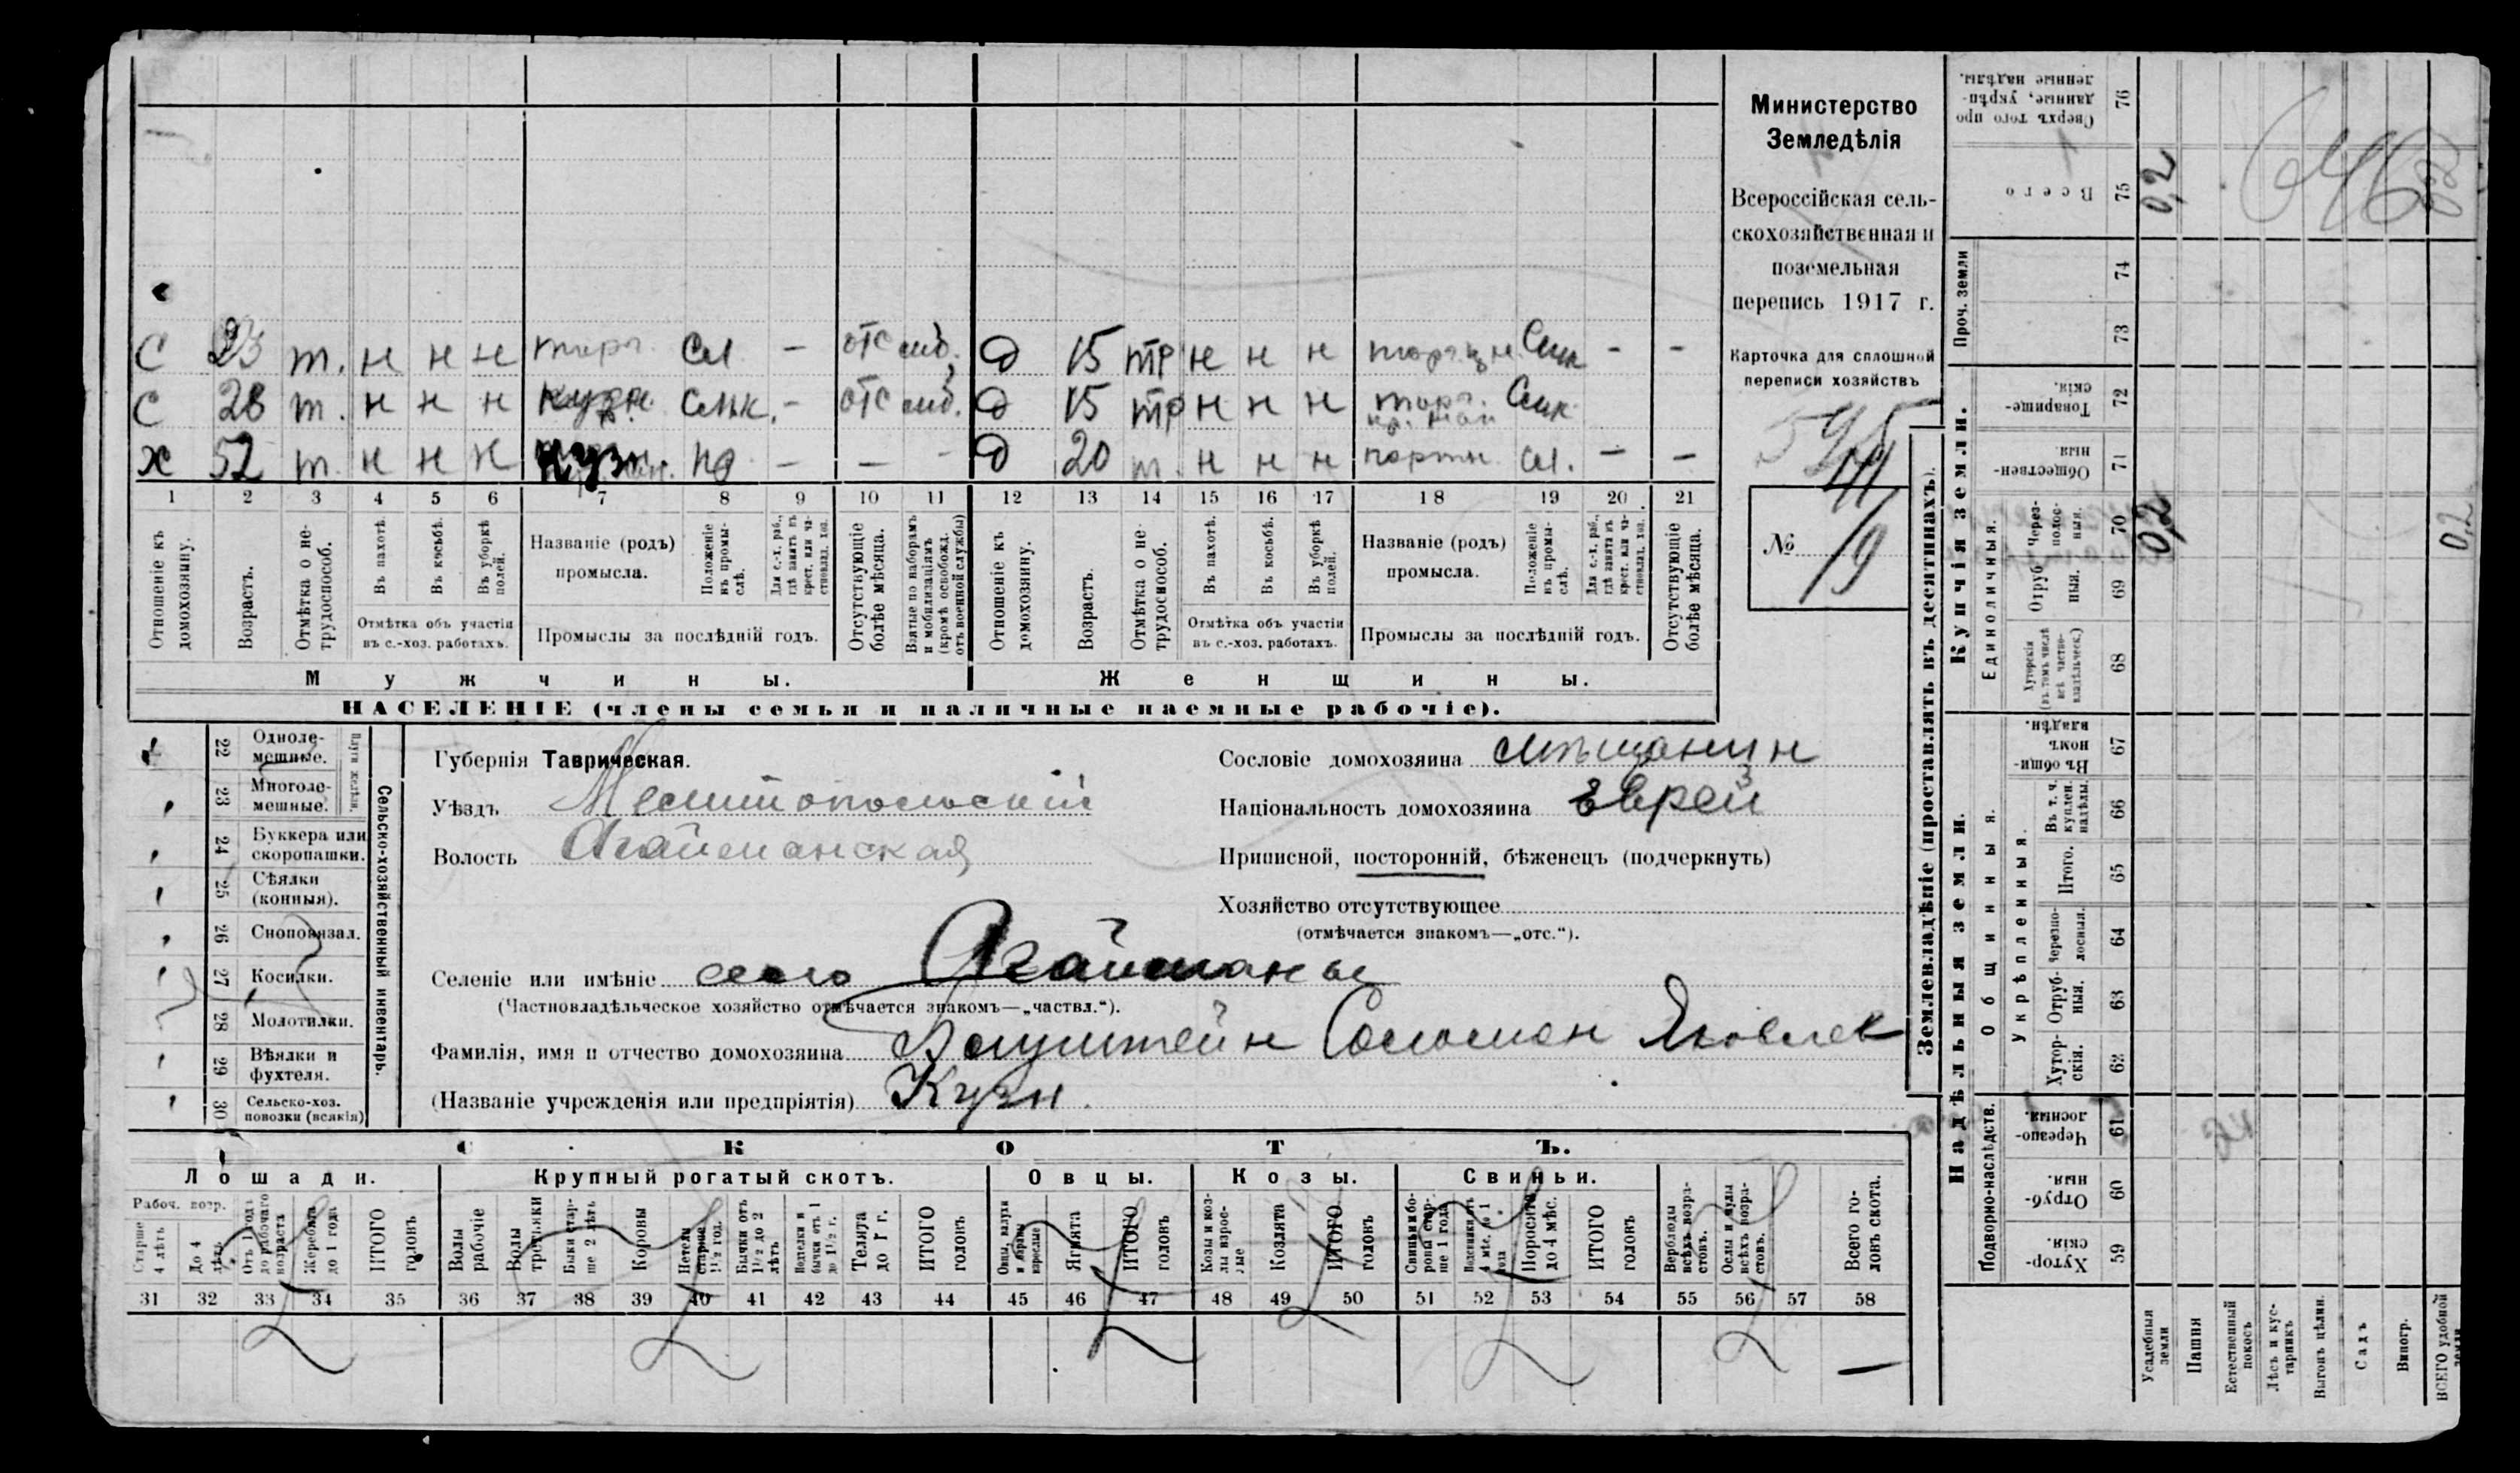 Министерство
Земледѣлія
Всероссійская сель-
скохозяйственная и
поземельная
перепись 1917 г.
Карточка для сплошной
переписи хозяйствъ
№ 19
С 23 т. н н н торг. Сл. — отс моб. Д 15 тр н н н — —
С 28 т. н н н кузн. — отс моб. Д 15 тр н н н торг.
х 52 т. н н н кузн. — — — Д 20 т. н н н портн. сл. — —
1 2 3 4 5 6 7 8 9 10 11 12 13 14 15 16 17 18 19 20 21
Отношеніе къ домохозяину.
Возрастъ.
Отмѣтка о не-трудоспособ.
Въ пахотѣ.
Въ косьбѣ.
Въ уборкѣ полей.
Отмѣтка объ участіи въ с.-хоз. работахъ.
Названіе (родъ) промысла.
Положеніе въ промы-слѣ.
Для с.-х. раб., гдѣ занятъ въ крест. или ча-стновлад. хоз.
Промыслы за послѣдній годъ.
Отсутствующіе болѣе мѣсяца.
Взятые по наборамъ и мобилизаціямъ (кромѣ освобожд. отъ военной службы)
Отношеніе къ домохозяину.
Возрастъ.
Отмѣтка о не-трудоспособ.
Въ пахотѣ.
Въ косьбѣ.
Въ уборкѣ полей.
Отмѣтка объ участіи въ с.-хоз. работахъ.
Названіе (родъ) промысла.
Положеніе въ промы-слѣ.
Для с.-х. раб., гдѣ занята въ крест. или ча-стновлад. хоз.
Промыслы за послѣдній годъ.
Отсутствующіе болѣе мѣсяца.
Мужчины. Женщины.
НАСЕЛЕНІЕ (члены семьи и наличные наемные рабочіе).
Сельско-хозяйственный инвентарь.
22 Одноле-мешные.
23 Многоле-мешные.
24 Буккера или скоропашки.
25 Сѣялки (конныя).
26 Сноповязал.
27 Косилки.
28 Молотилки.
29 Вѣялки и фухтеля.
30 Сельско-хоз. повозки (всякія)
Губернія Таврическая.
Уѣздъ Мелитопольскій
Волость Агайманская
Сословіе домохозяина мѣщанин
Національность домохозяина Еврей
Приписной, посторонній, бѣженецъ (подчеркнуть)
Хозяйство отсутствующее
(отмѣчается знакомъ—„отс.“).
Селеніе или имѣніе село Агайманы
(Частновладѣльческое хозяйство отмѣчается знакомъ—„частвл.“).
Фамилія, имя и отчество домохозяина Соломон Яковлев
(Названіе учрежденія или предпріятія) Кузн.
СКОТЪ.
Лошади. Крупный рогатый скотъ. Овцы. Козы. Свиньи.
Рабоч. возр.
Старше 4 лѣтъ
До 4 лѣтъ
Отъ 1 года до рабочаго возраста
Жеребята до 1 года
ИТОГО головъ
Волы рабочіе
Волы третьяки
Быки стар-ше 2 лѣтъ
Коровы
Нетели старше 1½ год.
Бычки отъ 1½ до 2 лѣтъ
Нотелки и бычки отъ 1 до 1½ г.
Телята до 1 г.
ИТОГО головъ
Овцы, валухи и бараны взрослые
Ягнята
ИТОГО головъ
Козы и коз-лы взрос-лые
Козлята
ИТОГО головъ
Свиньи бо-ровы стар-ше 1 года
Подсвинки отъ 4 мѣс. до 1 года
Поросята до 4 мѣс.
ИТОГО головъ
Верблюды всѣхъ возра-стовъ.
Ослы и мулы всѣхъ возра-стовъ.
Всего го-ловъ скота.
31 32 33 34 35 36 37 38 39 40 41 42 43 44 45 46 47 48 49 50 51 52 53 54 55 56 57 58
—
Землевладѣніе (проставлять въ десятинахъ).
Надѣльныя земли. Купчія земли. Проч. земли
Подворно-наслѣдств.
Общинныя.
Укрѣпленныя.
Единоличныя.
Хутор-скія. 59
Отруб-ныя. 60
Черезпо-лосныя. 61
Хутор-скія. 62
Отруб-ныя. 63
Черезпо-лосныя. 64
Итого. 65
Въ т. ч. куплен. надѣлы. 66
Въ общи-номъ владѣн. 67
Хуторскія (въ томъ числѣ всѣ частно-владѣльческ.) 68
Отруб-ныя. 69
Через-полос-ныя. 70
Обществен-ныя. 71
Товарище-скія. 72
73
74
Всего 75
Сверхъ того про-данные, укрѣп-ленные надѣлы. 76
Усадебныя земли 0,2 0,2
Пашня
Естественный покосъ
Лѣсъ и кус-тарникъ
Выгонъ цѣлин.
Садъ
Виногр.
ВСЕГО удобной земли 0,2 0,2